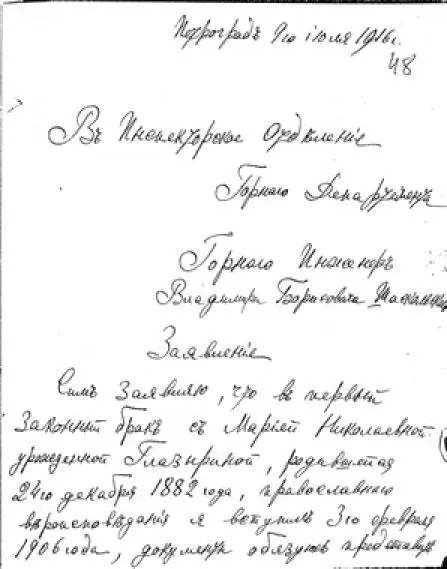 Петроградъ 9го iюля 1916 г.
48
Въ Инспекторское Отдѣленiе
Горнаго Департамента
Горнаго Инженера
Владимира Борисовича
Заявленiе
Симъ заявляю, что въ первый
законный бракъ съ Марiей Николаевной
урожденной Глазыриной, родившейся
24го декабря 1882 года, православнаго
вѣроисповѣданiя я вступилъ 3го февраля
1906 года, документъ обязуюсь представить